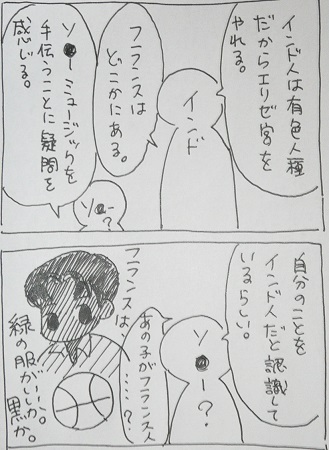 インド人は有色人種
だからエリゼ宮を
やれる。
インド
フランスは
どこかにある。
ソ●ーミュージックを
手伝うことに疑問を
感じる。
ソ●ー?
自分のことを
インド人だと認識して
いるらしい。
ソ●ー?
あの子がフランス人
……?
フランスは、
緑の服がいいか。
黒か。